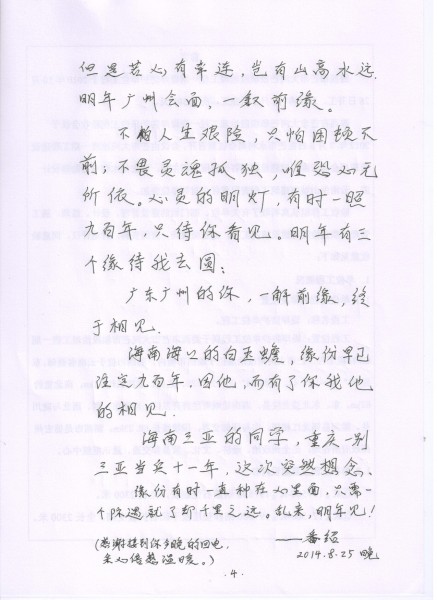 但是若心有牵连，岂有山高水远.
明年广州会面，一叙前缘。
不怕人生艰险，只怕困顿不
前；不畏灵魂孤独，唯恐心无
所依。心灵的明灯，有时一照
九百年，只待你看见。明年有三
个缘待我去圆：
广东广州的你，一解前缘，终
于相见.
海南海口的白玉蟾，缘份早已
注定九百年，因他，而有了你我他
的相见.
海南三亚的同学，重庆一别
三亚当实十一年，这次突然想念、
缘份有时一直种在心里面，只需一
个际遇就了却千里之远。乱来，明年见！
(感谢接到你多晚的回电，
来心倍感温暖。)
2014.8.25 晚
.4.